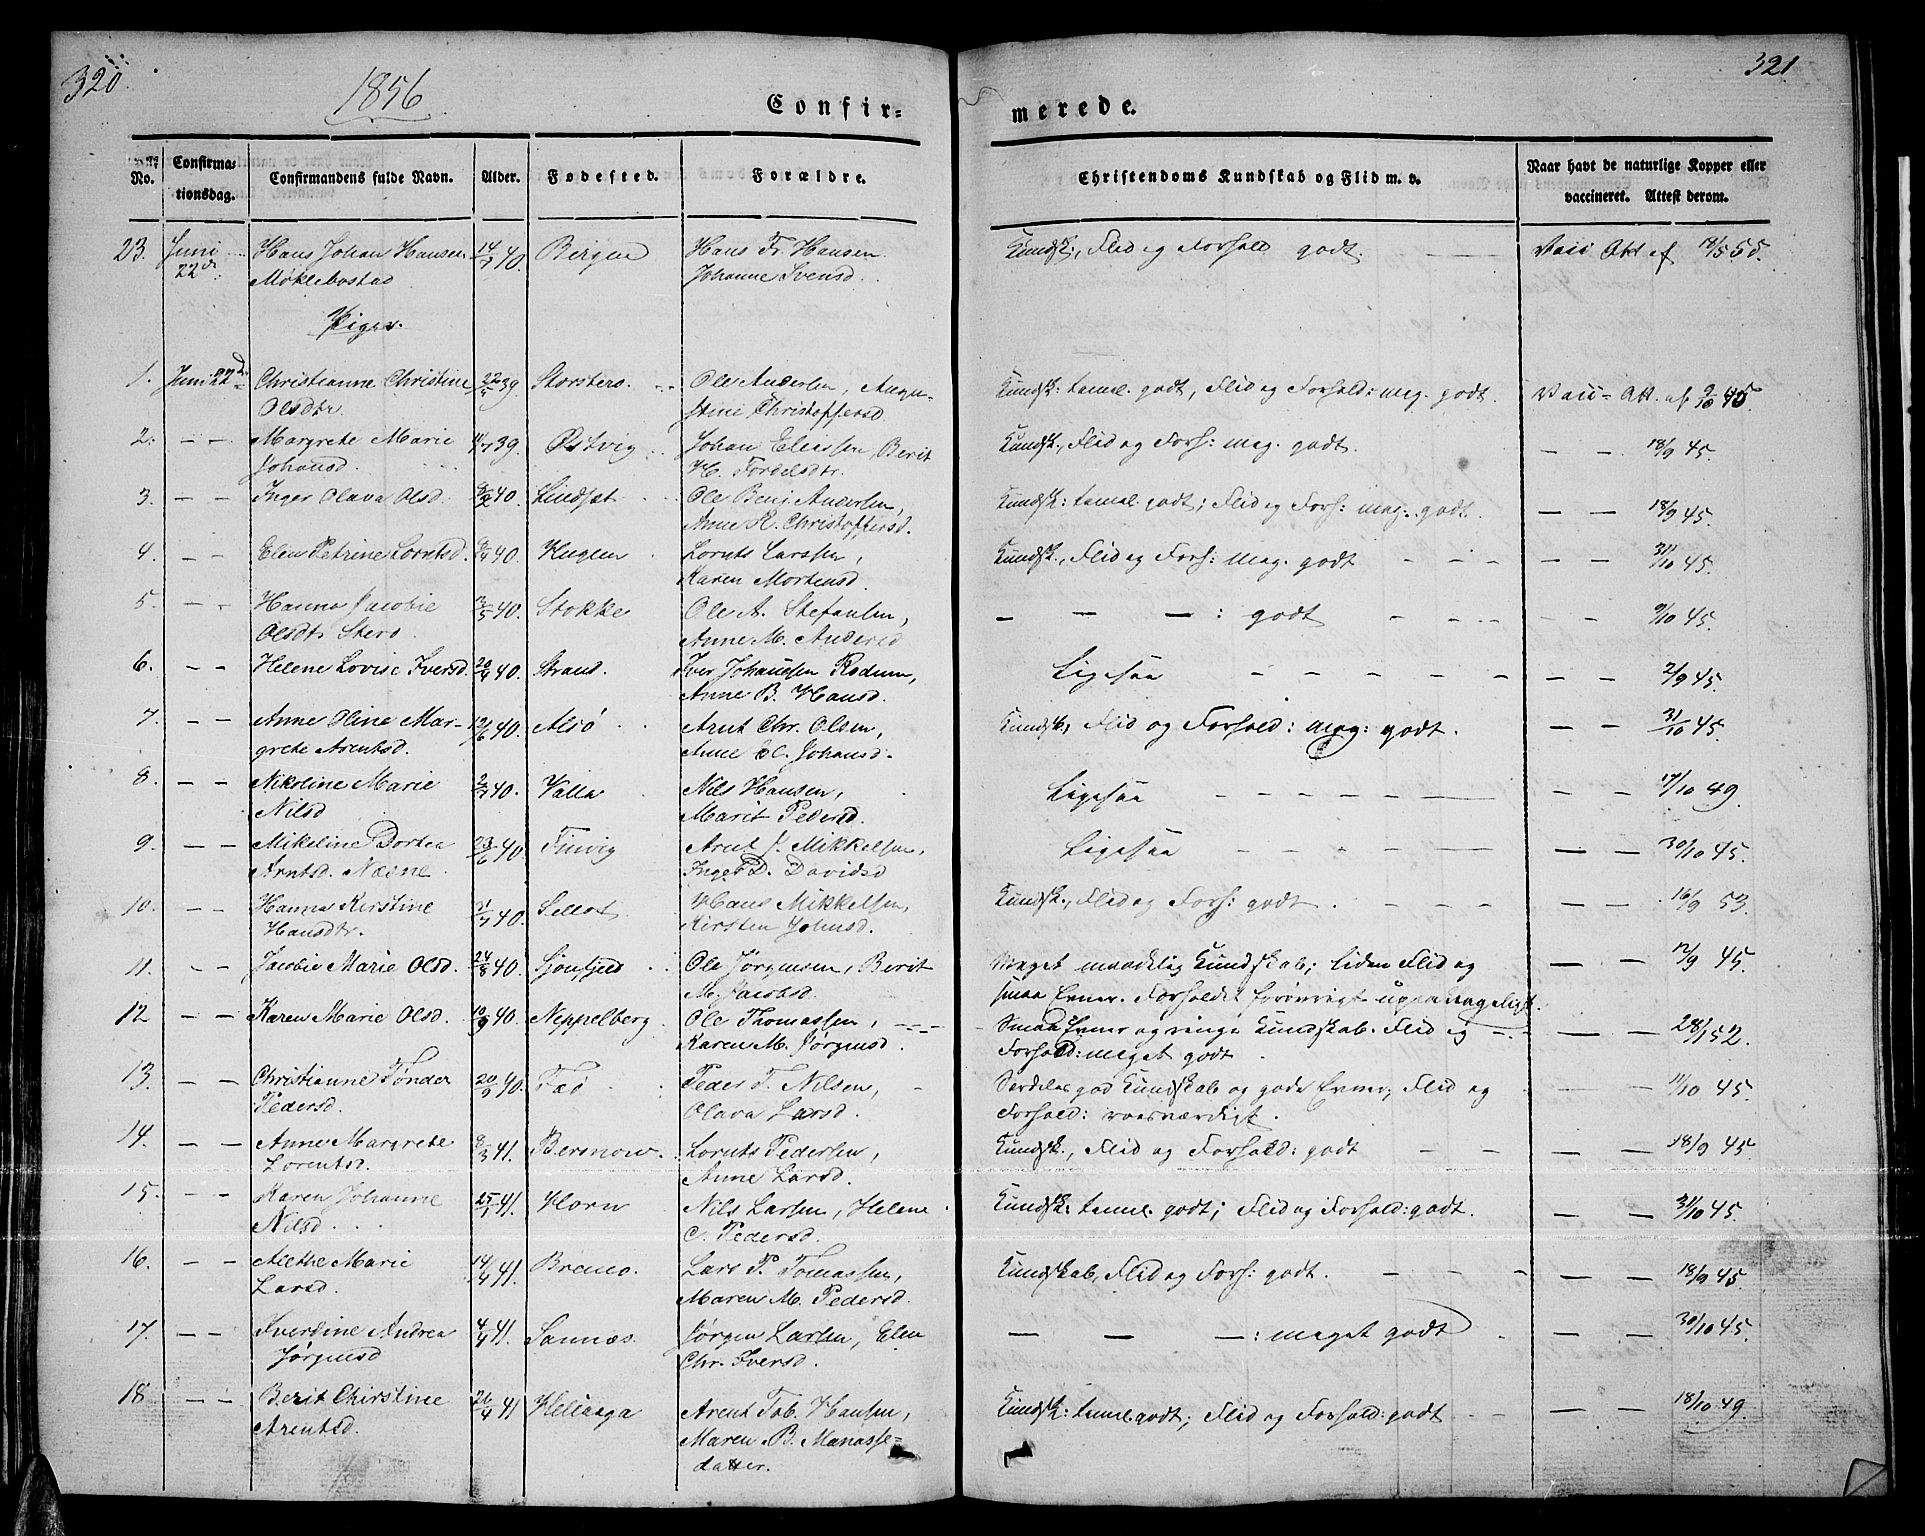 320.
1856
Confir-
No.
Confirma-
tionsdag.
Confirmandens fulde Navn.
Alder.
Fødested.
Forældre.
23. Juni 22de Hans Johan Hansen 14/7 40. Bergen Hans Fr. Hansen
Møklebostad Johanne Svensd.
Piger.
1. Juni 22d Christianne Christine 39. Storstero. Ole Andersen, Augu-
Olsdtr. stine Christoffersd
2. – – Margrete Marie 11/7 39. Østvig Johan Eliassen, Berit
Johansd. H. Tordelsdtr.
3. – – Inger Olava Olsd. 40. Lindset Ole Benj. Andersen,
Anne K. Christoffersd.
4. – Elen Petrine Lorntsd. 40. Kugen Lornts Larssen,
Karen Mortensd.
5. – – Hanna Jacobie 3/5 40. Stokke Ole A. Stefansen,
Olsdtr Stero. Anne M. Andersd
6. – – Helene Lovise Iversd. 20/4 40. Strand. Iver Johansen Rodum,
Anne B. Hansd.
7. – – Anne Oline Mar- 12/6 40. Alsö Arnt Chr. Olsen,
grete Arentsd. Anne El. Johansd.
8. – – Nikoline Marie 2/7 40. Valla Nils Hansen,
Nilsd Marit Pedersd.
9. – – Mikeline Dortea 23/6 40. Finvig Arnt J. Mikkelsen,
Arntsd. Næsne. Inger D. Davidsd
10. – – Hanna Kirstine 40. Sellot Hans Mikkelsen,
Hansdtr. Kirsten Johnsd.
11. – – Jacobie Marie Olsd. 24/8 40. Sjonfjed Ole Jørgensen, Berit
M. Jacobsd.
12 – – Karen Marie Olsd. 10/9 40. Neppelberg Ole Thomassen,
Karen M. Jørgensd.
13. – – Christianne Tønder 20/9 40. Peder T. Nilsen,
Pedersd. Olava Larsd.
14. – – Anne Margrete 8/3 41. Bersnow. Lornts Pedersen,
Lorentsd. Anne Larsd.
15. – – Karen Johanne 25/1 41. Horn Nils Larsen, Helene
Nilsd C. Pedersd.
16. – – Alethe Marie 14/4 41. Bremo. Lars P. Tomassen,
Larsd. Maren M. Pedersd.
17. – – Iverdine Andrea 4/4 41. Sannæs. Jørgen Larsen, Elen
Jørgensd Chr. Iversd.
18 – – Berit Chirstine 26/4 41 Hellaaga Arent Tob. Hansen,
Arentsd. Maren B. Manasse-
datter.
321
merede.
Christendoms Kundskab og Flid m. v.
Naar havt de naturlige Kopper eller
vaccineret. Attest derom.
Kundsk., Flid og Forhold godt. Att af 18/5 55.
Kundsk: temml. godt, Flid og Forhold: meg. godt. Att. af 9/10 45.
Kundsk., Flid og Forh: meg. godt. – – 18/9 45.
Kundsk: temml. godt; Flid og Forh: meg. godt. – – 18/9 45.
Kundsk., Flid og Forh: meg. godt – – 31/10 45.
– – –: godt – – 9/10 45.
Ligesaa – – 2/9 45.
Kundsk, Flid og Forhold: meg: godt. – – 31/10 45.
Ligesaa – – 17/10 49.
Ligesaa – – 30/10 45.
Kundsk., Flid og Forh: godt. – – 16/9 53.
Meget maadelig Kundskab; liden Flid og – – 12/9 45.
smaa Evner. Forholdet forøvrigt upaaklageligt.
Smaa Evner og ringe Kundskab. Flid og – – 28/1 52.
Forhold: meget godt.
Særdeles god Kundskab og gode Evner; Flid og – – 11/10 45.
Forhold: roesværdigt.
Kundsk., Flid og Forhold: godt – – 18/9 45.
Kundsk: temml. godt; Flid og Forhold: godt. – – 31/10 45.
Kundskab, Flid og Forh: godt. – – 18/9 45.
– – –: meget godt – – 30/10 45.
Kundsk: temml godt; Flid og Forhold: godt – – 18/10 49.